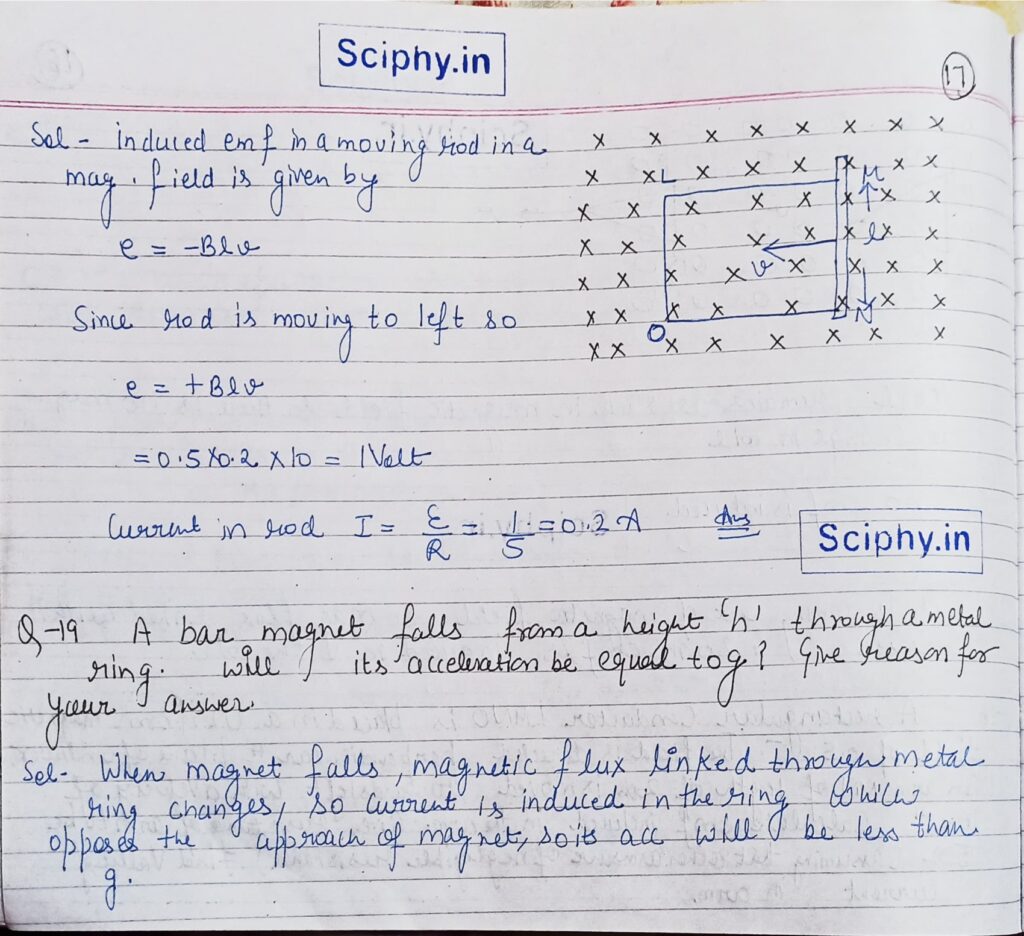 Sciphy.in
17
Sol - induced emf in a moving rod in a
mag. field is given by
e = -Blv
Since rod is moving to left so
e = +Blv
= 0.5 X0.2 X 10 = 1Volt
Current in rod I = ε/R = 1/5 = 0.2 A Ans
L
M
l
v
O
N
Sciphy.in
Q-19 A bar magnet falls from a height 'h' through a metal
ring. will its acceleration be equal to g? Give reason for
your answer.
Sol- When magnet falls, magnetic flux linked through metal
ring changes, so current is induced in the ring which
opposes the approach of magnet, so its acc will be less than
g.